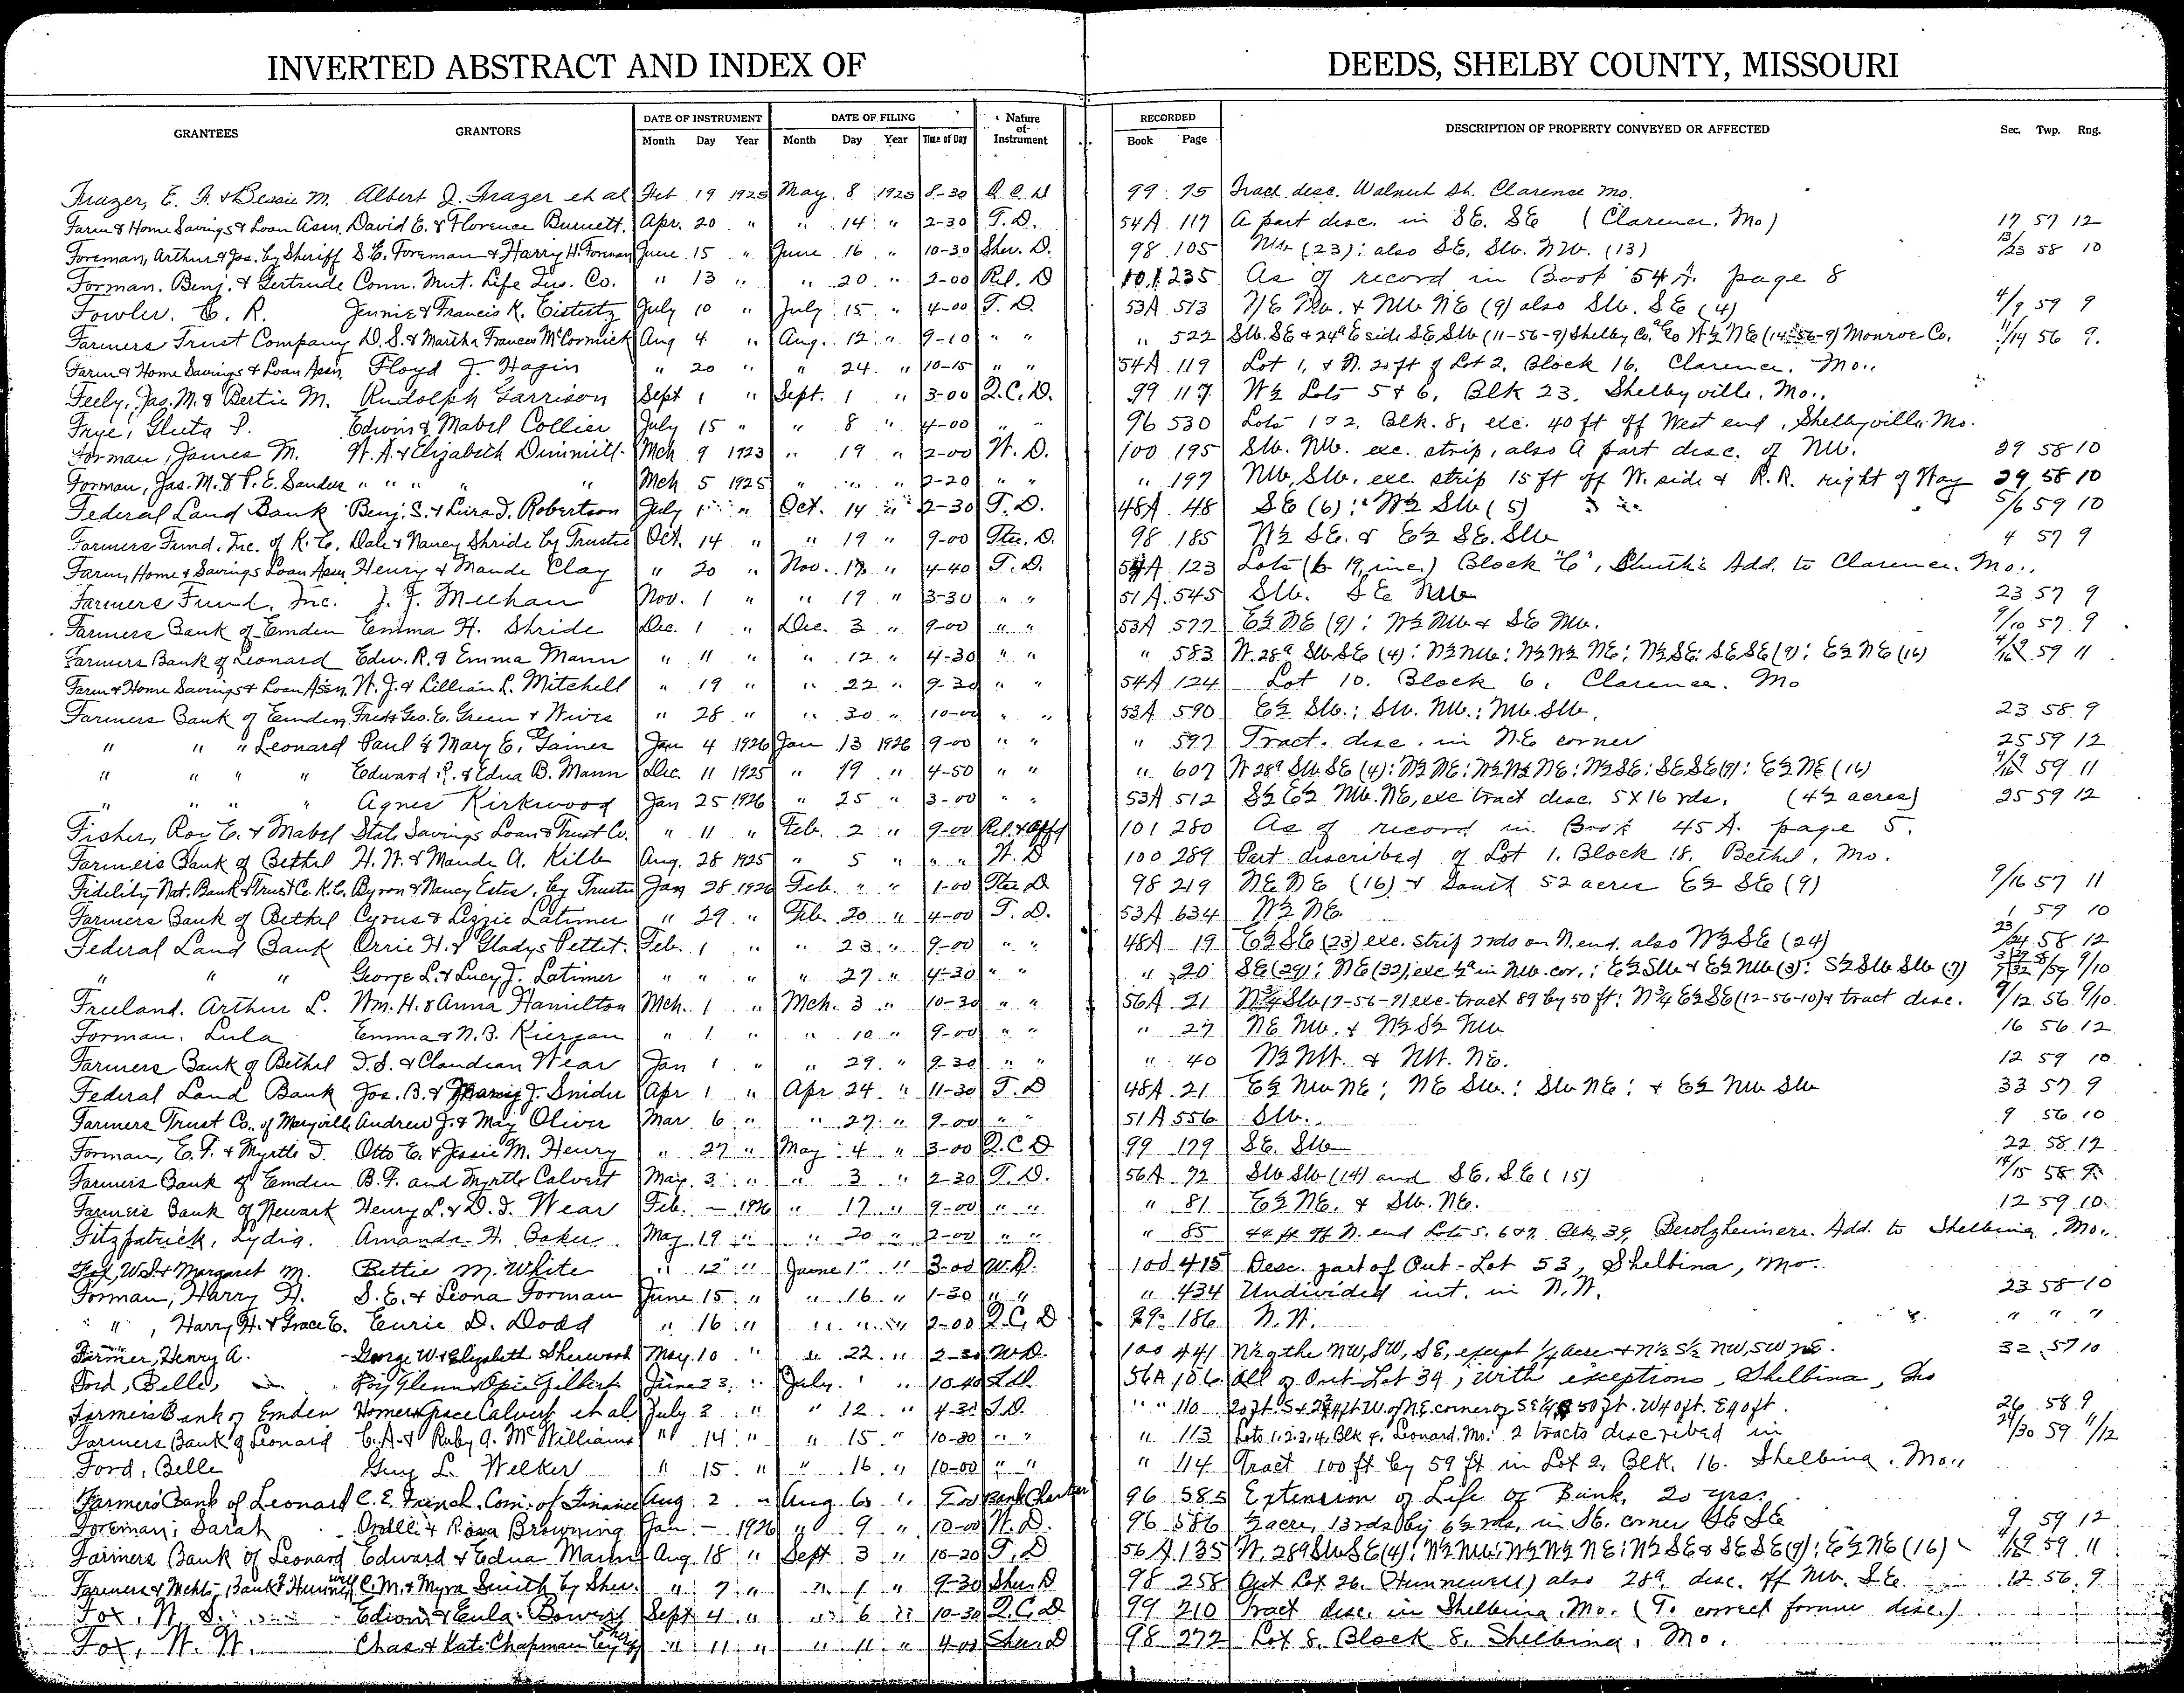 INVERTED ABSTRACT AND INDEX OF DEEDS, SHELBY COUNTY, MISSOURI
GRANTEES GRANTORS DATE OF INSTRUMENT DATE OF FILING Nature of Instrument RECORDED DESCRIPTION OF PROPERTY CONVEYED OR AFFECTED Sec. Twp. Rng.
Month Day Year Month Day Year Time of Day Book Page
Frazer, E. F. & Bessie M. Albert J. Frazer et al Feb 19 1925 May 8 1925 8-30 Q C D 99 75 Tract desc. Walnut St. Clarence Mo.
Farm & Home Savings & Loan Assn. David E. & Florence Burnett. Apr. 20 " " 14 " 2-30 T. D. 54A 117 A part desc. in SE. SE (Clarence, Mo) 17 57 12
Foreman, Arthur & Jas. by Sheriff S. E. Foreman & Harry H. Forman June 15 " June 16 " 10-30 Sher. D. 98 105 NW (23): also SE. SW. NW. (13) 13/23 58 10
Forman. Benj. & Gertrude Conn. Mut. Life Ins. Co. " 13 " " 20 " 2-00 Rel. D 101 235 As of record in Book 54A page 8
Fowler. C. R. Jennie & Francis K. July 10 " July 15 " 4-00 T. D. 53A 513 NE NW. & NW NE (9) also SW. SE (4) 4/9 59 9
Farmers Trust Company D. S. & Martha Frances McCormick Aug 4 " Aug. 12 " 9-10 " " " 522 SW. SE & 24a E side SE SW (11-56-9) Shelby Co. W½ NE (14-56-9) Monroe Co. 11/14 56 9.
Farm & Home Savings & Loan Assn. Floyd J. Hagin " 20 " " 24 " 10-15 " " 54A 119 Lot 1, & N. 20 ft of Lot 2, Block 16, Clarence, Mo.,
Feely, Jas. M. & Bertie M. Rudolph Garrison Sept 1 " Sept. 1 " 3-00 Q. C. D. 99 117 W½ Lots 5 & 6, Blk 23, Shelbyville, Mo.,
Frye, P. Edwin & Mabel Collier July 15 " " 8 " 4-00 " " 96 530 Lots 1 & 2, Blk. 8, exc. 40 ft off West end, Shelbyville, Mo.
Forman, James M. W. A. & Elizabeth Dimmitt. Mch 9 1923 " 19 " 2-00 W. D. 100 195 SW. NW. exc. strip, also a part disc. of NW. 29 58 10
Forman, Jas. M. & P. E. Sander " " " " " Mch 5 1925 " " " 2-20 " " " 197 NW, SW. exc. strip 15 ft off W. side & R.R. right of Way 29 58 10
Federal Land Bank Benj. S. & Lura D. Robertson July 1 " Oct. 14 " 2-30 T. D. 48A 48 SE (6): W½ SW (5) 5/6 59 10
Farmers Fund, Inc. of K. C. Dale & Nancy Shride by Trustee Oct. 14 " " 19 " 9-00 Ttee. D. 98 185 W½ SE. & E½ SE. SW 4 57 9
Farm, Home & Savings Loan Assn. Henry & Maude Clay " 20 " Nov. 17 " 4-40 T. D. 54A 123 Lots (6 19, inc.) Block "C", Add. to Clarence, Mo.,
Farmers Fund, Inc. J. J. Meehan Nov. 1 " " 19 " 3-30 " " 51A 545 SW. SE NW 23 57 9
Farmers Bank of Emden Emma H. Shride Dec. 1 " Dec. 3 " 9-00 " " 53A 577 E½ NE (9): W½ NW & SE NW. 9/10 57 9
Farmers Bank of Leonard Edw. R. & Emma Mann " 11 " " 12 " 4-30 " " " 583 W. 28a SW SE (4): N½ NW: N½ W½ NE: N½ SE: SE SE (9): E½ NE (16) 59 11
Farm & Home Savings & Loan Assn. W. J. & Lillian L. Mitchell " 19 " " 22 " 9-30 " " 54A 124 Lot 10, Block 6, Clarence, Mo
Farmers Bank of Emden Fred & Geo. C. Green & Wives " 28 " " 30 " 10-00 " " 53A 590 E½ SW.; SW. NW.; NW. SW. 23 58 9
" " " Leonard Paul & Mary E. Gaines Jan 4 1926 Jan 13 1926 9-00 " " " 597 Tract. disc. in NE corner 25 59 12
" " " " Edward R. & Edna B. Mann Dec. 11 1925 " 19 " 4-50 " " " 607 W 28a SW SE (4): N½ NE: N½ W½ NE: N½ SE: SE SE (9): E½ NE (16) 59 11
" " " " Agnes Kirkwood Jan 25 1926 " 25 " 3-00 " " 53A 512 S½ E½ NW. NE, exc tract disc. 5 X 16 rds. (4½ acres) 25 59 12
Fisher, Roy E. & Mabel State Savings Loan & Trust Co. " 11 " Feb. 2 " 9-00 Rel. & Affd 101 280 As of record in Book 45A page 5.
Farmers Bank of Bethel H. W. & Maude A. Kilb Aug. 28 1925 " 5 " " " W. D 100 289 Part described of Lot 1, Block 18, Bethel, Mo.
Fidelity Nat. Bank & Trust Co. K.C. Byron & Nancy Estes, by Trustee Jan 28 1926 Feb. " " 1-00 Ttee D 98 219 NE NE (16) & South 52 acres E½ SE (9) 9/16 57 11
Farmers Bank of Bethel Cyrus & Lizzie Latimer " 29 " Feb. 20 " 4-00 T. D. 53A 634 W½ NE. 1 59 10
Federal Land Bank Orrie H. & Gladys Pettit. Feb. 1 " " 23 " 9-00 " " 48A 19 E½ SE (23) exc. strip 2 rds on N. end. also W½ SE (24) 23/24 58 12
" " " George L. & Lucy J. Latimer " " " " 27 " 4-30 " " " 20 SE (29); NE (32), exc ½a in NW. cor.; E½ SW & E½ NW (3): S½ SW SW (7) 9/10
Freeland. Arthur L. Wm. H. & Anna Hamilton Mch. 1 " Mch. 3 " 10-30 " " 56A 21 N¾ SW (7-56-9) exc. tract 89 by 50 ft: N¾ E½ SE (12-56-10) & tract disc. 7/12 56 9/10
Forman, Lula Emma & N. B. Kiergan " 1 " " 10 " 9-00 " " " 27 NE NW. & N½ S½ NW 16 56 12
Farmers Bank of Bethel T. S. & Claudian Wear Jan 1 " " 29 " 9-30 " " " 40 N½ NW. & NW. NE. 12 59 10
Federal Land Bank Jos. B. & J. Snider Apr 1 " Apr 24 " 11-30 T. D 48A 21 E½ NW NE; NE SW.: SW NE: & E½ NW SW 33 57 9
Farmers Trust Co. of Maryville Andrew J. & May Oliver Mar 6 " " 27 " 9-00 " " 51A 556 SW. 9 56 10
Forman, E. F. & Myrtle T. Otto E. & Jessie M. Henry " 27 " May 4 " 3-00 Q. C D 99 179 SE. SW 22 58 12
Farmers Bank of Emden B. F. and Myrtle Calvert May 3 " " 3 " 2-30 T. D. 56A 72 SW SW (14) and SE. SE (15) 14/15 58 9
Farmers Bank of Newark Henry L. & D. I. Wear Feb. — 1926 " 17 " 9-00 " " " 81 E½ NE. & SW. NE. 12 59 10
Fitzpatrick, Lydia. Amanda H. Baker. May 19 " " 20 " 2-00 " " " 85 44 ft off N. end Lots 5, 6 & 7 Blk 39, Berolzheimers. Add. to Shelbina, Mo.,
Fox, W. S. & Margaret M. Bettie M. White " 12 " June 1 " 3-00 W. D. 100 415 Desc. part of Out-Lot 53, Shelbina, Mo.
Forman, Harry H. S. E. & Leona Forman June 15 " " 16 " 1-30 " " " 434 Undivided int. in N. W. 23 58 10
" ", Harry H. & Grace E. Eurie D. Dodd " 16 " " " " 2-00 Q. C. D 99 186 N. W. " " "
Farmer, Henry A. George W & Elizabeth Sherwood May 10 " " 22 " 2-30 W. D. 100 441 N½ of the NW, SW, SE, except ¼ acre & N½ S½ NW, SW SE. 32 57 10
Ford, Belle, Roy Glenn & Opie Gilbert June 23 " July 1 " 10-40 56A 106 All of Out-Lot 39, with exceptions, Shelbina, Mo
Farmers Bank of Emden Homer & Grace Calvert et al July 3 " " 12 " 4-30 T. D. " " 110 26 58 9
Farmers Bank of Leonard C. A. & Ruby A. McWilliams " 14 " " 15 " 10-30 " " " 113 Lots 1, 2, 3, 4, Blk Leonard, Mo. 2 tracts described in /30 59 11/12
Ford, Belle Guy L. Welker " 15 " " 16 " 10-00 " " " 114 Tract 100 ft by 59 ft in Lot 2, Blk. 16. Shelbina, Mo.,
Farmers Bank of Leonard C. E. French, Com. of Finance Aug 2 " Aug 6 " Bank Charter 96 585 Extension of Life of Bank, 20 yrs.
Foreman, Sarah & Rosa Browning Jan — 1926 " 9 " 10-00 W. D. 96 586 ½ acre, 13 rds by 6½ rds, in SE. corner SE SE 9 59 12
Farmers Bank of Leonard Edward & Edna Mann Aug 18 " Sept 3 " 10-20 T. D 56A 135 W. 28a SW SE (4): N½ NW: N½ W½ NE: N½ SE & SE SE (9): E½ NE (16) 59 11
Farmers & Mchts. Bank of Hunnewell C. M. & Myra Smith by Sher. " 7 " " 1 " 9-30 Sher. D 98 258 Out Lot 26. (Hunnewell) also 28a. disc. off NW. SE 12 56 9
Fox, W. S. Edwin & Eula Bowers Sept 4 " " 6 " 10-30 Q. C. D 99 210 Tract disc. in Shelbina, Mo. (To correct former disc.)
Fox, W. W. Chas & Kate Chapman by Sher " 11 " " 11 " 4-00 Sher. D 98 272 Lot 8, Block 8, Shelbina, Mo.